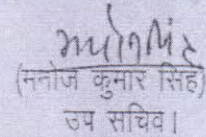 (मनोज कुमार सिंह)
उप सचिव।